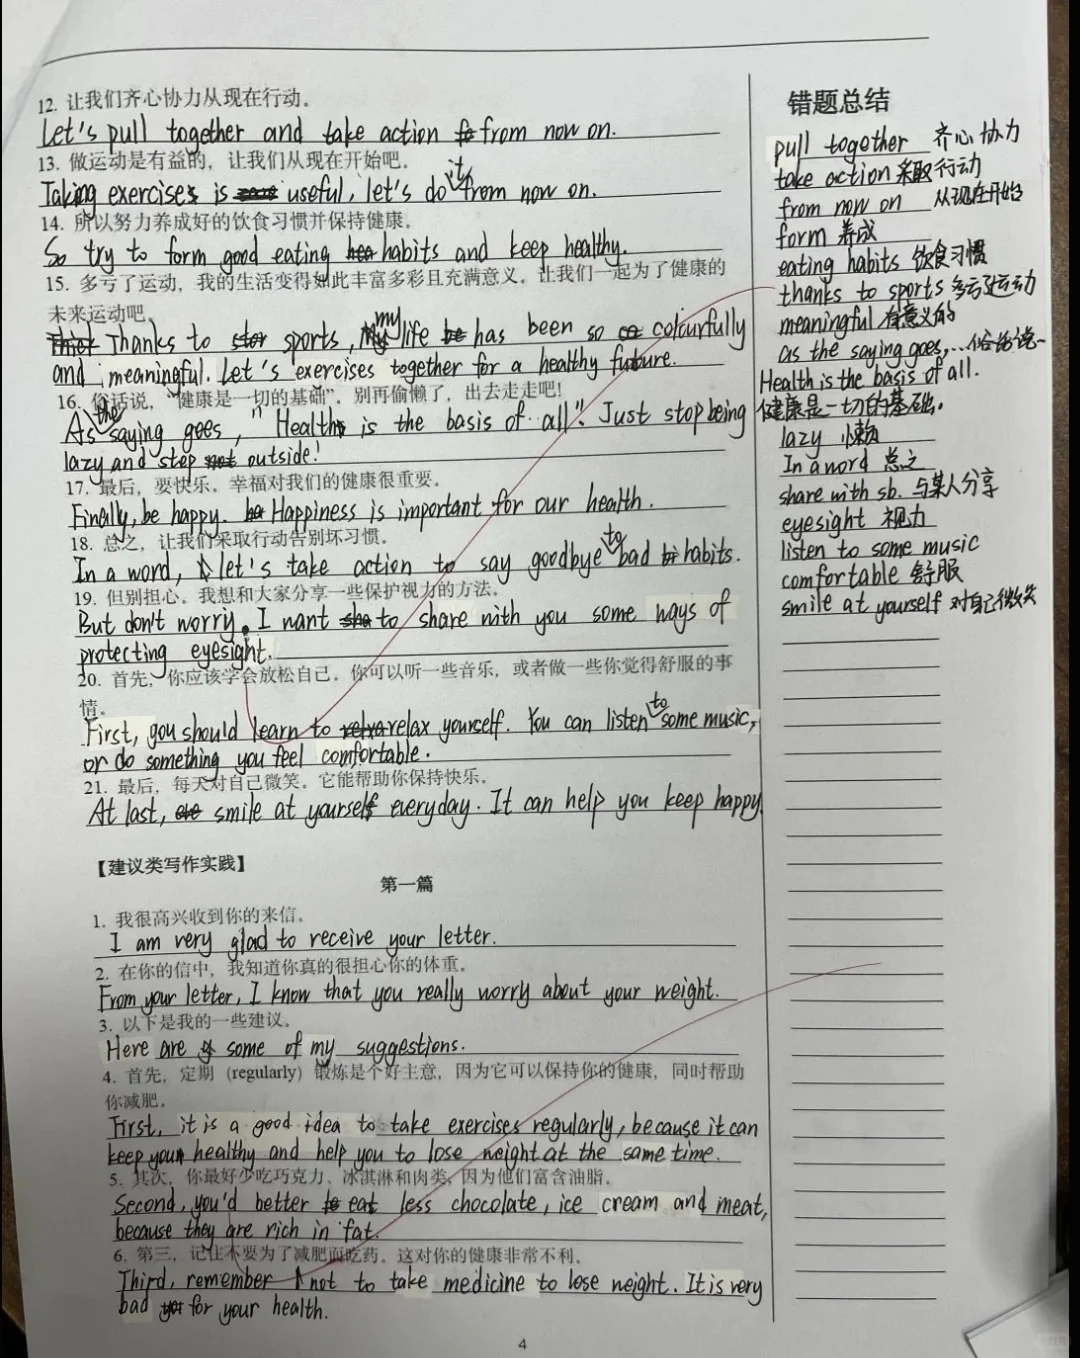 12. 让我们齐心协力从现在行动。
Let's pull together and take action from now on.
13. 做运动是有益的，让我们从现在开始吧。
Taking exercises is useful, let's do it from now on.
14. 所以努力养成好的饮食习惯并保持健康。
So try to form good eating habits and keep healthy.
15. 多亏了运动，我的生活变得如此丰富多彩且充满意义。让我们一起为了健康的
未来运动吧。
Thanks to sports, my life has been so colourfully
and meaningful. Let's exercises together for a healthy future.
16. 俗话说，“健康是一切的基础”，别再偷懒了，出去走走吧！
As the saying goes, "Health is the basis of all". Just stop being
lazy and step outside!
17. 最后，要快乐。幸福对我们的健康很重要。
Finally, be happy. Happiness is important for our health.
18. 总之，让我们采取行动告别坏习惯。
In a word, let's take action to say goodbye to bad habits.
19. 但别担心。我想和大家分享一些保护视力的方法。
But don't worry. I want to share with you some ways of
protecting eyesight.
20. 首先，你应该学会放松自己。你可以听一些音乐，或者做一些你觉得舒服的事
情。
First, you should learn to relax yourself. You can listen to some music,
or do something you feel comfortable.
21. 最后，每天对自己微笑。它能帮助你保持快乐。
At last, smile at yourself everyday. It can help you keep happy.
【建议类写作实践】
第一篇
1. 我很高兴收到你的来信。
I am very glad to receive your letter.
2. 在你的信中，我知道你真的很担心你的体重。
From your letter, I know that you really worry about your weight.
3. 以下是我的一些建议。
Here are some of my suggestions.
4. 首先，定期（regularly）锻炼是个好主意，因为它可以保持你的健康，同时帮助
你减肥。
First, it is a good idea to take exercises regularly, because it can
keep you healthy and help you to lose weight at the same time.
5. 其次，你最好少吃巧克力、冰淇淋和肉类，因为他们富含油脂。
Second, you'd better eat less chocolate, ice cream and meat,
because they are rich in fat.
6. 第三，记住不要为了减肥而吃药。这对你的健康非常不利。
Third, remember not to take medicine to lose weight. It is very
bad for your health.
错题总结
pull together 齐心协力
take action 采取行动
from now on 从现在开始
form 养成
eating habits 饮食习惯
thanks to sports 多亏运动
meaningful 有意义的
as the saying goes,... 俗话说
Health is the basis of all.
健康是一切的基础.
lazy 懒
In a word 总之
share with sb. 与某人分享
eyesight 视力
listen to some music
comfortable 舒服
smile at yourself 对自己微笑
4